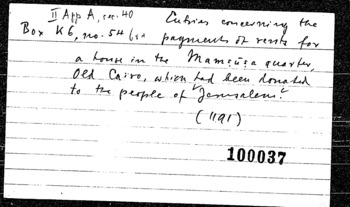 II App A, sec. 40
Entries concerning the
Box K 6, no. 54
payments of rents for
a house in the Mamṣūṣa quarter,
Old Cairo, which had been donated
to the people of "Jerusalem."
(1191)
100037